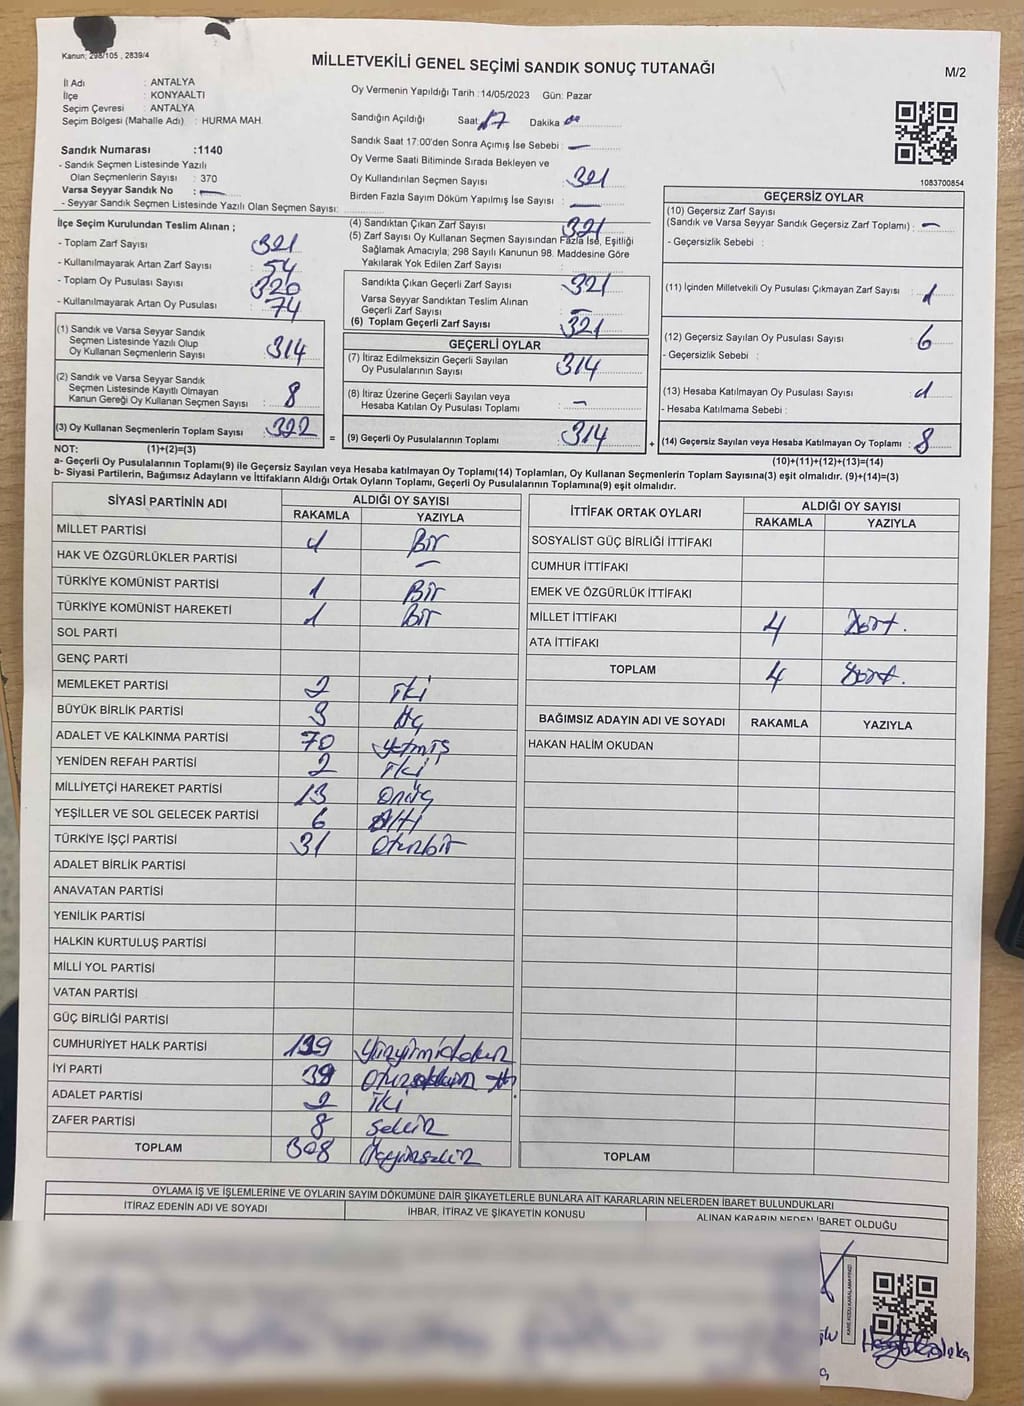 Kanun, 298/105 , 2839/4
MİLLETVEKİLİ GENEL SEÇİMİ SANDIK SONUÇ TUTANAĞI
M/2
İl Adı : ANTALYA
İlçe : KONYAALTI
Seçim Çevresi : ANTALYA
Seçim Bölgesi (Mahalle Adı) : HURMA MAH.
Sandık Numarası :1140
- Sandık Seçmen Listesinde Yazılı
Olan Seçmenlerin Sayısı : 370
Varsa Seyyar Sandık No : —
- Seyyar Sandık Seçmen Listesinde Yazılı Olan Seçmen Sayısı:
Oy Vermenin Yapıldığı Tarih :14/05/2023 Gün: Pazar
Sandığın Açıldığı Saat 17 Dakika 00
Sandık Saat 17:00'den Sonra Açımış İse Sebebi : —
Oy Verme Saati Bitiminde Sırada Bekleyen ve
Oy Kullandırılan Seçmen Sayısı : 321
Birden Fazla Sayım Döküm Yapılmış İse Sayısı : —
1083700854
İlçe Seçim Kurulundan Teslim Alınan ;
- Toplam Zarf Sayısı : 321
- Kullanılmayarak Artan Zarf Sayısı : 54
- Toplam Oy Pusulası Sayısı : 320
- Kullanılmayarak Artan Oy Pusulası : 74
(1) Sandık ve Varsa Seyyar Sandık
Seçmen Listesinde Yazılı Olup
Oy Kullanan Seçmenlerin Sayısı : 314
(2) Sandık ve Varsa Seyyar Sandık
Seçmen Listesinde Kayıtlı Olmayan
Kanun Gereği Oy Kullanan Seçmen Sayısı : 8
(3) Oy Kullanan Seçmenlerin Toplam Sayısı : 322 =
(4) Sandıktan Çıkan Zarf Sayısı : 321
(5) Zarf Sayısı Oy Kullanan Seçmen Sayısından Fazla İse, Eşitliği
Sağlamak Amacıyla; 298 Sayılı Kanunun 98. Maddesine Göre
Yakılarak Yok Edilen Zarf Sayısı :
Sandıkta Çıkan Geçerli Zarf Sayısı : 321
Varsa Seyyar Sandıktan Teslim Alınan
Geçerli Zarf Sayısı : —
(6) Toplam Geçerli Zarf Sayısı : 321
GEÇERLİ OYLAR
(7) İtiraz Edilmeksizin Geçerli Sayılan
Oy Pusulalarının Sayısı : 314
(8) İtiraz Üzerine Geçerli Sayılan veya
Hesaba Katılan Oy Pusulası Toplamı : —
(9) Geçerli Oy Pusulalarının Toplamı : 314 +
GEÇERSİZ OYLAR
(10) Geçersiz Zarf Sayısı
(Sandık ve Varsa Seyyar Sandık Geçersiz Zarf Toplamı) : —
- Geçersizlik Sebebi :
(11) İçinden Milletvekili Oy Pusulası Çıkmayan Zarf Sayısı : 1
(12) Geçersiz Sayılan Oy Pusulası Sayısı : 6
- Geçersizlik Sebebi :
(13) Hesaba Katılmayan Oy Pusulası Sayısı : 1
- Hesaba Katılmama Sebebi :
(14) Geçersiz Sayılan veya Hesaba Katılmayan Oy Toplamı : 8
NOT: (1)+(2)=(3) (10)+(11)+(12)+(13)=(14)
a- Geçerli Oy Pusulalarının Toplamı(9) ile Geçersiz Sayılan veya Hesaba katılmayan Oy Toplamı(14) Toplamları, Oy Kullanan Seçmenlerin Toplam Sayısına(3) eşit olmalıdır. (9)+(14)=(3)
b- Siyasi Partilerin, Bağımsız Adayların ve İttifakların Aldığı Ortak Oyların Toplamı, Geçerli Oy Pusulalarının Toplamına(9) eşit olmalıdır.
SİYASİ PARTİNİN ADI ALDIĞI OY SAYISI
RAKAMLA YAZIYLA
MİLLET PARTİSİ 1 Bir
HAK VE ÖZGÜRLÜKLER PARTİSİ —
TÜRKİYE KOMÜNİST PARTİSİ 1 Bir
TÜRKİYE KOMÜNİST HAREKETİ 1 Bir
SOL PARTİ
GENÇ PARTİ
MEMLEKET PARTİSİ 2 İki
BÜYÜK BİRLİK PARTİSİ 3 Üç
ADALET VE KALKINMA PARTİSİ 70 Yetmiş
YENİDEN REFAH PARTİSİ 2 İki
MİLLİYETÇİ HAREKET PARTİSİ 13 Onüç
YEŞİLLER VE SOL GELECEK PARTİSİ 6 Altı
TÜRKİYE İŞÇİ PARTİSİ 31 Otuzbir
ADALET BİRLİK PARTİSİ
ANAVATAN PARTİSİ
YENİLİK PARTİSİ
HALKIN KURTULUŞ PARTİSİ
MİLLİ YOL PARTİSİ
VATAN PARTİSİ
GÜÇ BİRLİĞİ PARTİSİ
CUMHURİYET HALK PARTİSİ 129 Yüzyirmidokuz
İYİ PARTİ 39
ADALET PARTİSİ 2 İki
ZAFER PARTİSİ 8 Sekiz
TOPLAM 308 Üçyüzsekiz
İTTİFAK ORTAK OYLARI ALDIĞI OY SAYISI
RAKAMLA YAZIYLA
SOSYALİST GÜÇ BİRLİĞİ İTTİFAKI
CUMHUR İTTİFAKI
EMEK VE ÖZGÜRLÜK İTTİFAKI
MİLLET İTTİFAKI 4 Dört.
ATA İTTİFAKI
TOPLAM 4 Dört.
BAĞIMSIZ ADAYIN ADI VE SOYADI RAKAMLA YAZIYLA
HAKAN HALİM OKUDAN
TOPLAM
OYLAMA İŞ VE İŞLEMLERİNE VE OYLARIN SAYIM DÖKÜMÜNE DAİR ŞİKAYETLERLE BUNLARA AİT KARARLARIN NELERDEN İBARET BULUNDUKLARI
İTİRAZ EDENİN ADI VE SOYADI İHBAR, İTİRAZ VE ŞİKAYETİN KONUSU ALINAN KARARIN NEDEN İBARET OLDUĞU